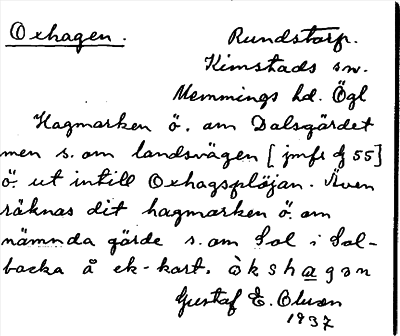 Oxhagen.
Rundstorp.
Kimstads sn.
Memmings hd. Ögl
Hagmarken ö. om Dalsgärdet
men s. om landsvägen [jmfr 55]
ö. ut intill Oxhagsplöjan. Även
räknas dit hagmarken ö. om
nämnda gärde s. om Sol i Sol-
backa å ek-kart. òkshagən
Gustaf E. Olson
1937